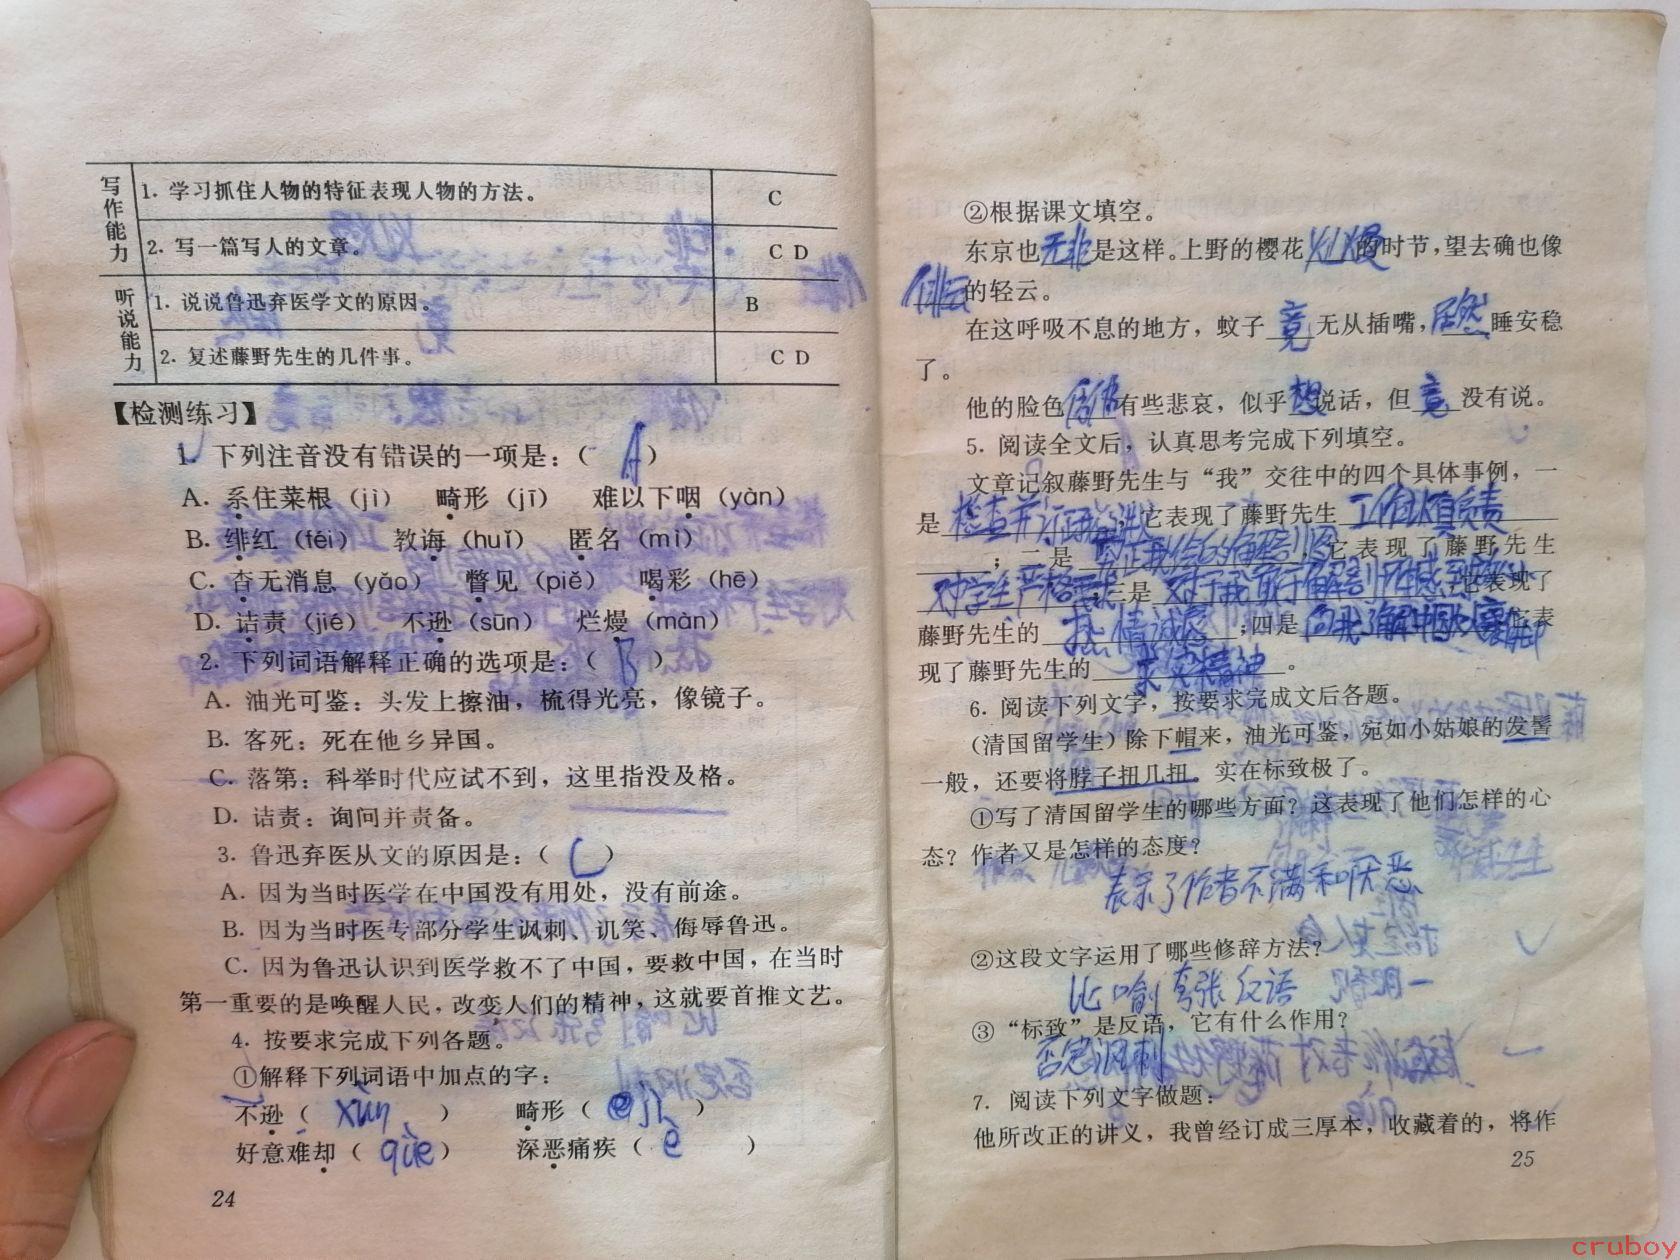 写作能力
1. 学习抓住人物的特征表现人物的方法。 C
2. 写一篇写人的文章。 C D
听说能力
1. 说说鲁迅弃医学文的原因。 B
2. 复述藤野先生的几件事。 C D
【检测练习】
1. 下列注音没有错误的一项是：（ A ）
A. 系住菜根（jì） 畸形（jī） 难以下咽（yàn）
B. 绯红（fěi） 教诲（huǐ） 匿名（mì）
C. 杳无消息（yǎo） 瞥见（piě） 喝彩（hē）
D. 诘责（jié） 不逊（sūn） 烂熳（màn）
2. 下列词语解释正确的选项是：（ B ）
A. 油光可鉴：头发上擦油，梳得光亮，像镜子。
B. 客死：死在他乡异国。
C. 落第：科举时代应试不到，这里指没及格。
D. 诘责：询问并责备。
3. 鲁迅弃医从文的原因是：（ C ）
A. 因为当时医学在中国没有用处，没有前途。
B. 因为当时医专部分学生讽刺、讥笑、侮辱鲁迅。
C. 因为鲁迅认识到医学救不了中国，要救中国，在当时
第一重要的是唤醒人民，改变人们的精神，这就要首推文艺。
4. 按要求完成下列各题。
①解释下列词语中加点的字：
不逊（ xùn ） 畸形（ jī ）
好意难却（ qüe ） 深恶痛疾（ è ）
24
②根据课文填空。
东京也无非是这样。上野的樱花烂熳的时节，望去确也像
绯红的轻云。
在这呼吸不息的地方，蚊子竟无从插嘴，居然睡安稳
了。
他的脸色仿佛有些悲哀，似乎想说话，但竟没有说。
5. 阅读全文后，认真思考完成下列填空。
文章记叙藤野先生与“我”交往中的四个具体事例，一
是检查并订正我的讲义，它表现了藤野先生工作认真负责
；二是纠正我绘的解剖图，它表现了藤野先生
对学生严格要求；三是对于我敢于解剖尸体感到，它表现了
藤野先生的热情诚恳；四是向我了解中国女人裹脚，它表
现了藤野先生的求实精神。
6. 阅读下列文字，按要求完成文后各题。
（清国留学生）除下帽来，油光可鉴，宛如小姑娘的发髻
一般，还要将脖子扭几扭。实在标致极了。
①写了清国留学生的哪些方面？这表现了他们怎样的心
态？作者又是怎样的态度？
表示了作者不满和厌恶
②这段文字运用了哪些修辞方法？
比喻 夸张 反语
③“标致”是反语，它有什么作用？
否定讽刺
7. 阅读下列文字做题：
他所改正的讲义，我曾经订成三厚本，收藏着的，将作
25
cruboy